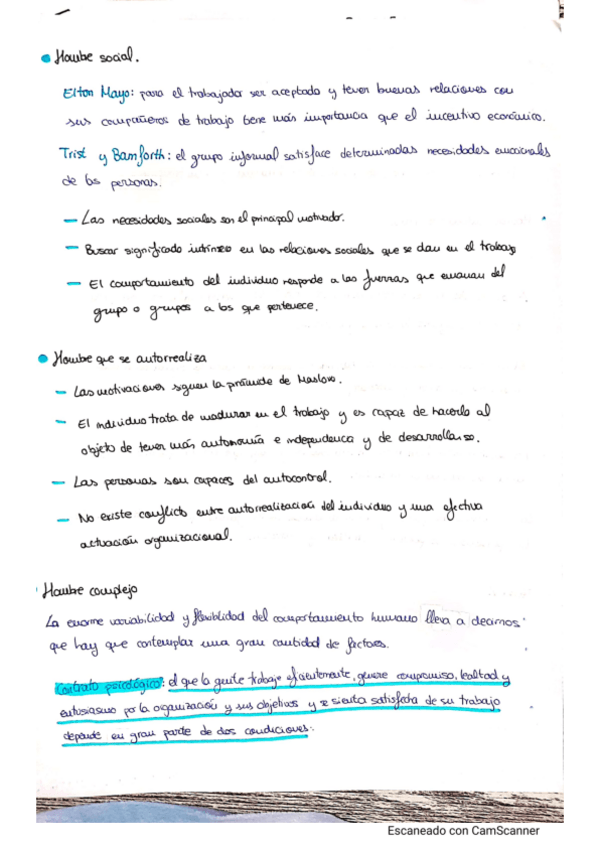 Hombre social.
Elton Mayo: para el trabajador ser aceptado y tener buenas relaciones con
sus compañeros de trabajo tiene más importancia que el incentivo económico.
Trist y Bamforth: el grupo informal satisface determinadas necesidades emocionales
de las personas.
— Las necesidades sociales son el principal motivador.
— Buscar significado intrínseco en las relaciones sociales que se dan en el trabajo
— El comportamiento del individuo responde a las fuerzas que emanan del
grupo o grupos a los que pertenece.
Hombre que se autorrealiza
— Las motivaciones siguen la pirámide de Maslow.
— El individuo trata de madurar en el trabajo y es capaz de hacerlo al
objeto de tener más autonomía e independencia y de desarrollarse.
— Las personas son capaces del autocontrol.
— No existe conflicto entre autorrealización del individuo y una efectiva
actuación organizacional.
Hombre complejo
La enorme variabilidad y flexiblidad del comportamiento humano lleva a decirnos
que hay que contemplar una gran cantidad de factores.
Contrato psicológico: el que la gente trabaje eficientemente, genere compromiso, lealtad y
entusiasmo por la organización y sus objetivos y se sienta satisfecha de su trabajo
depende en gran parte de dos condiciones:
Escaneado con CamScanner